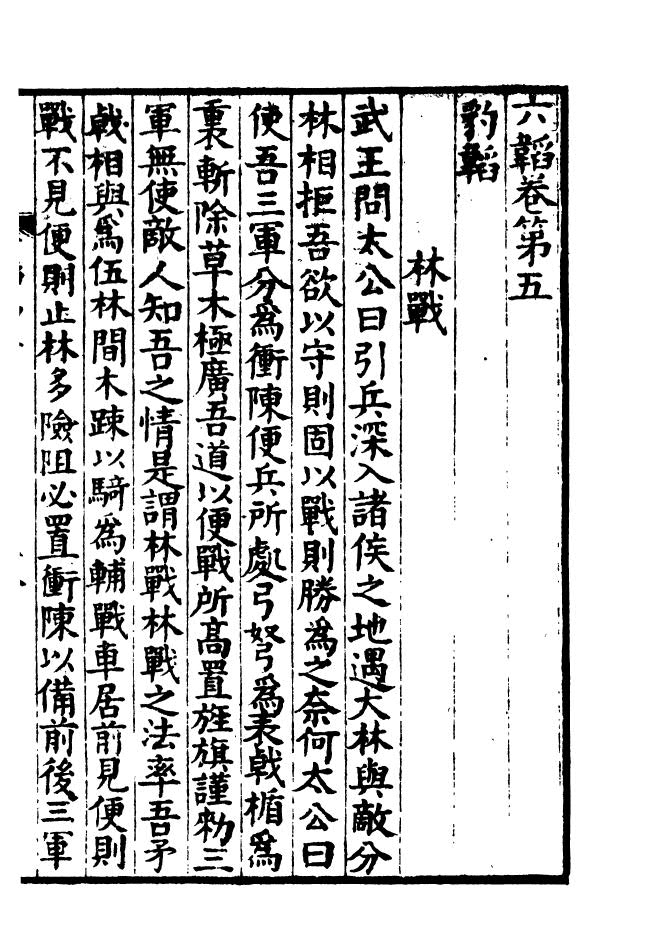 六韜卷第五
豹韜
林戰
武王問太公曰引兵深入諸侯之地遇大林與敵分
林相拒吾欲以守則固以戰則勝爲之奈何太公曰
使吾三軍分爲衝陳便兵所處弓弩爲表戟楯爲
裏斬除草木極廣吾道以便戰所高置旌旗謹勑三
軍無使敵人知吾之情是謂林戰林戰之法率吾矛
戟相與爲伍林間木踈以騎爲輔戰車居前見便則
戰不見便則止林多險阻必置衝陳以備前後三軍